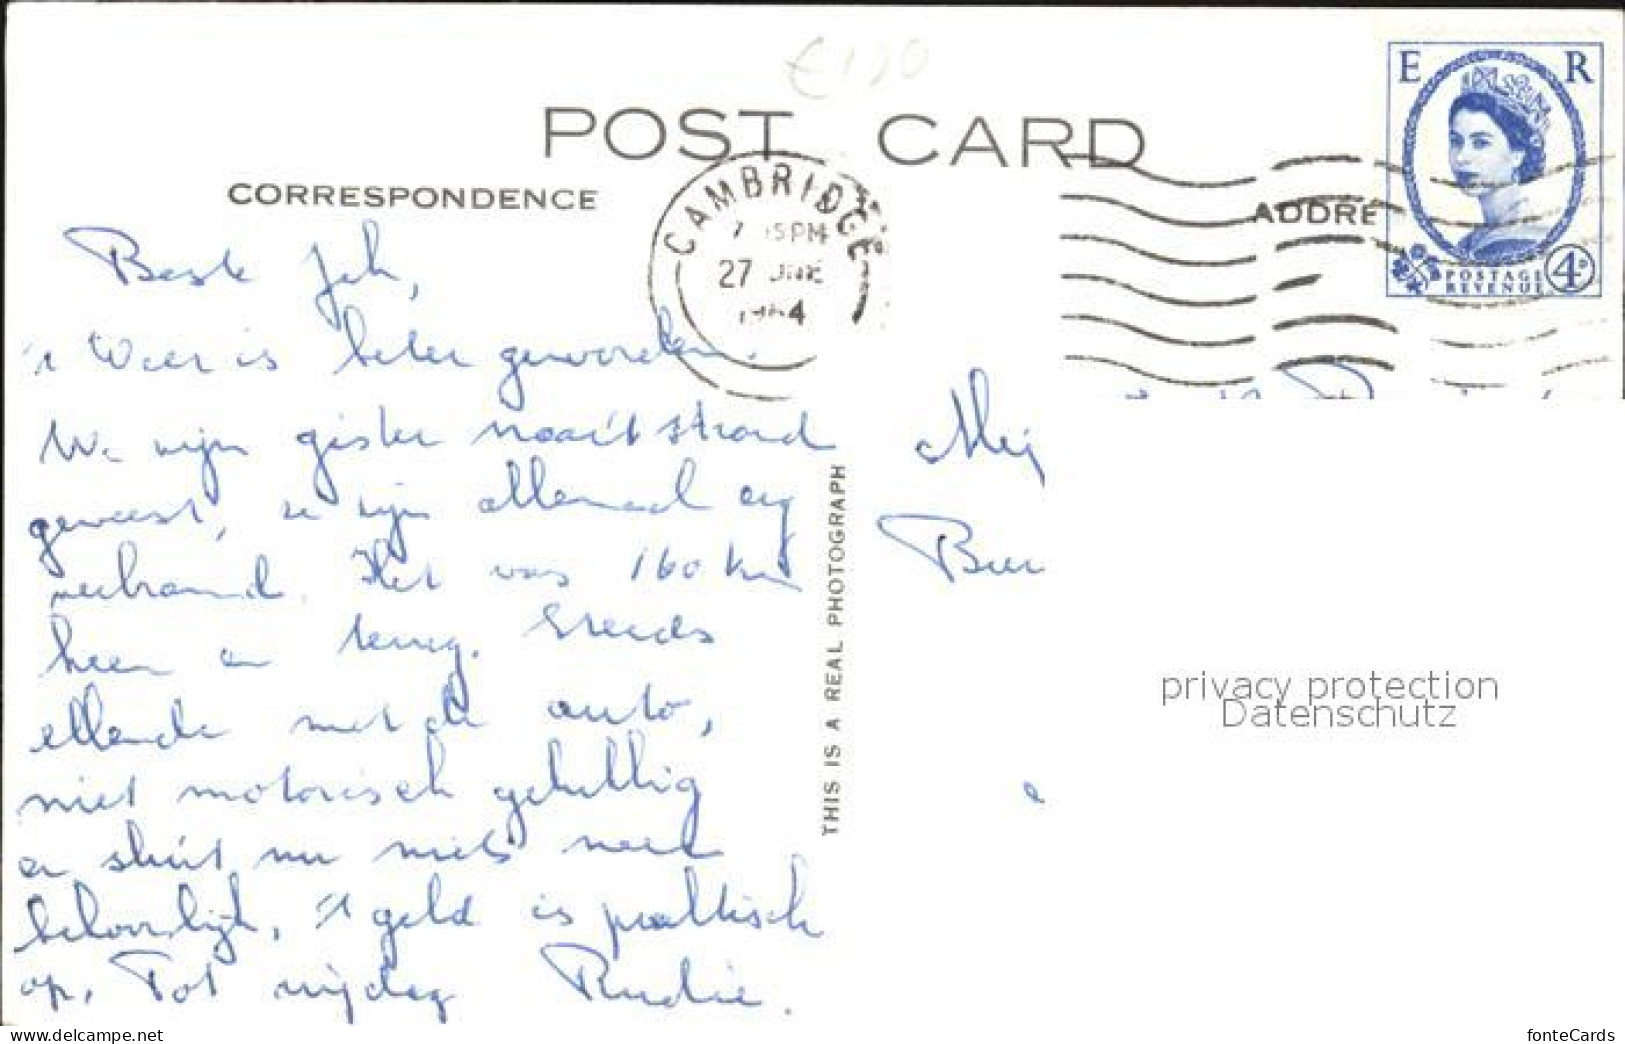 £120
POST CARD
CORRESPONDENCE
ADDRE
CAMBRIDGE
PM
27 JNE
E R
POSTAGE
REVENUE
4D
Beste Joh,
't Weer is beter geworden.
We zijn gister naar 't strand
geweest, ze zijn allemaal erg
verbrand. Het was 160 km
heen en terug. Steeds
ellende met de auto,
niet motorisch gelukkig
er sluit nu niets meer
behoorlijk, 't geld is praktisch
op. Tot vrijdag Rudie.
THIS IS A REAL PHOTOGRAPH
Mej
privacy protection
Datenschutz
www.delcampe.net
fonteCards